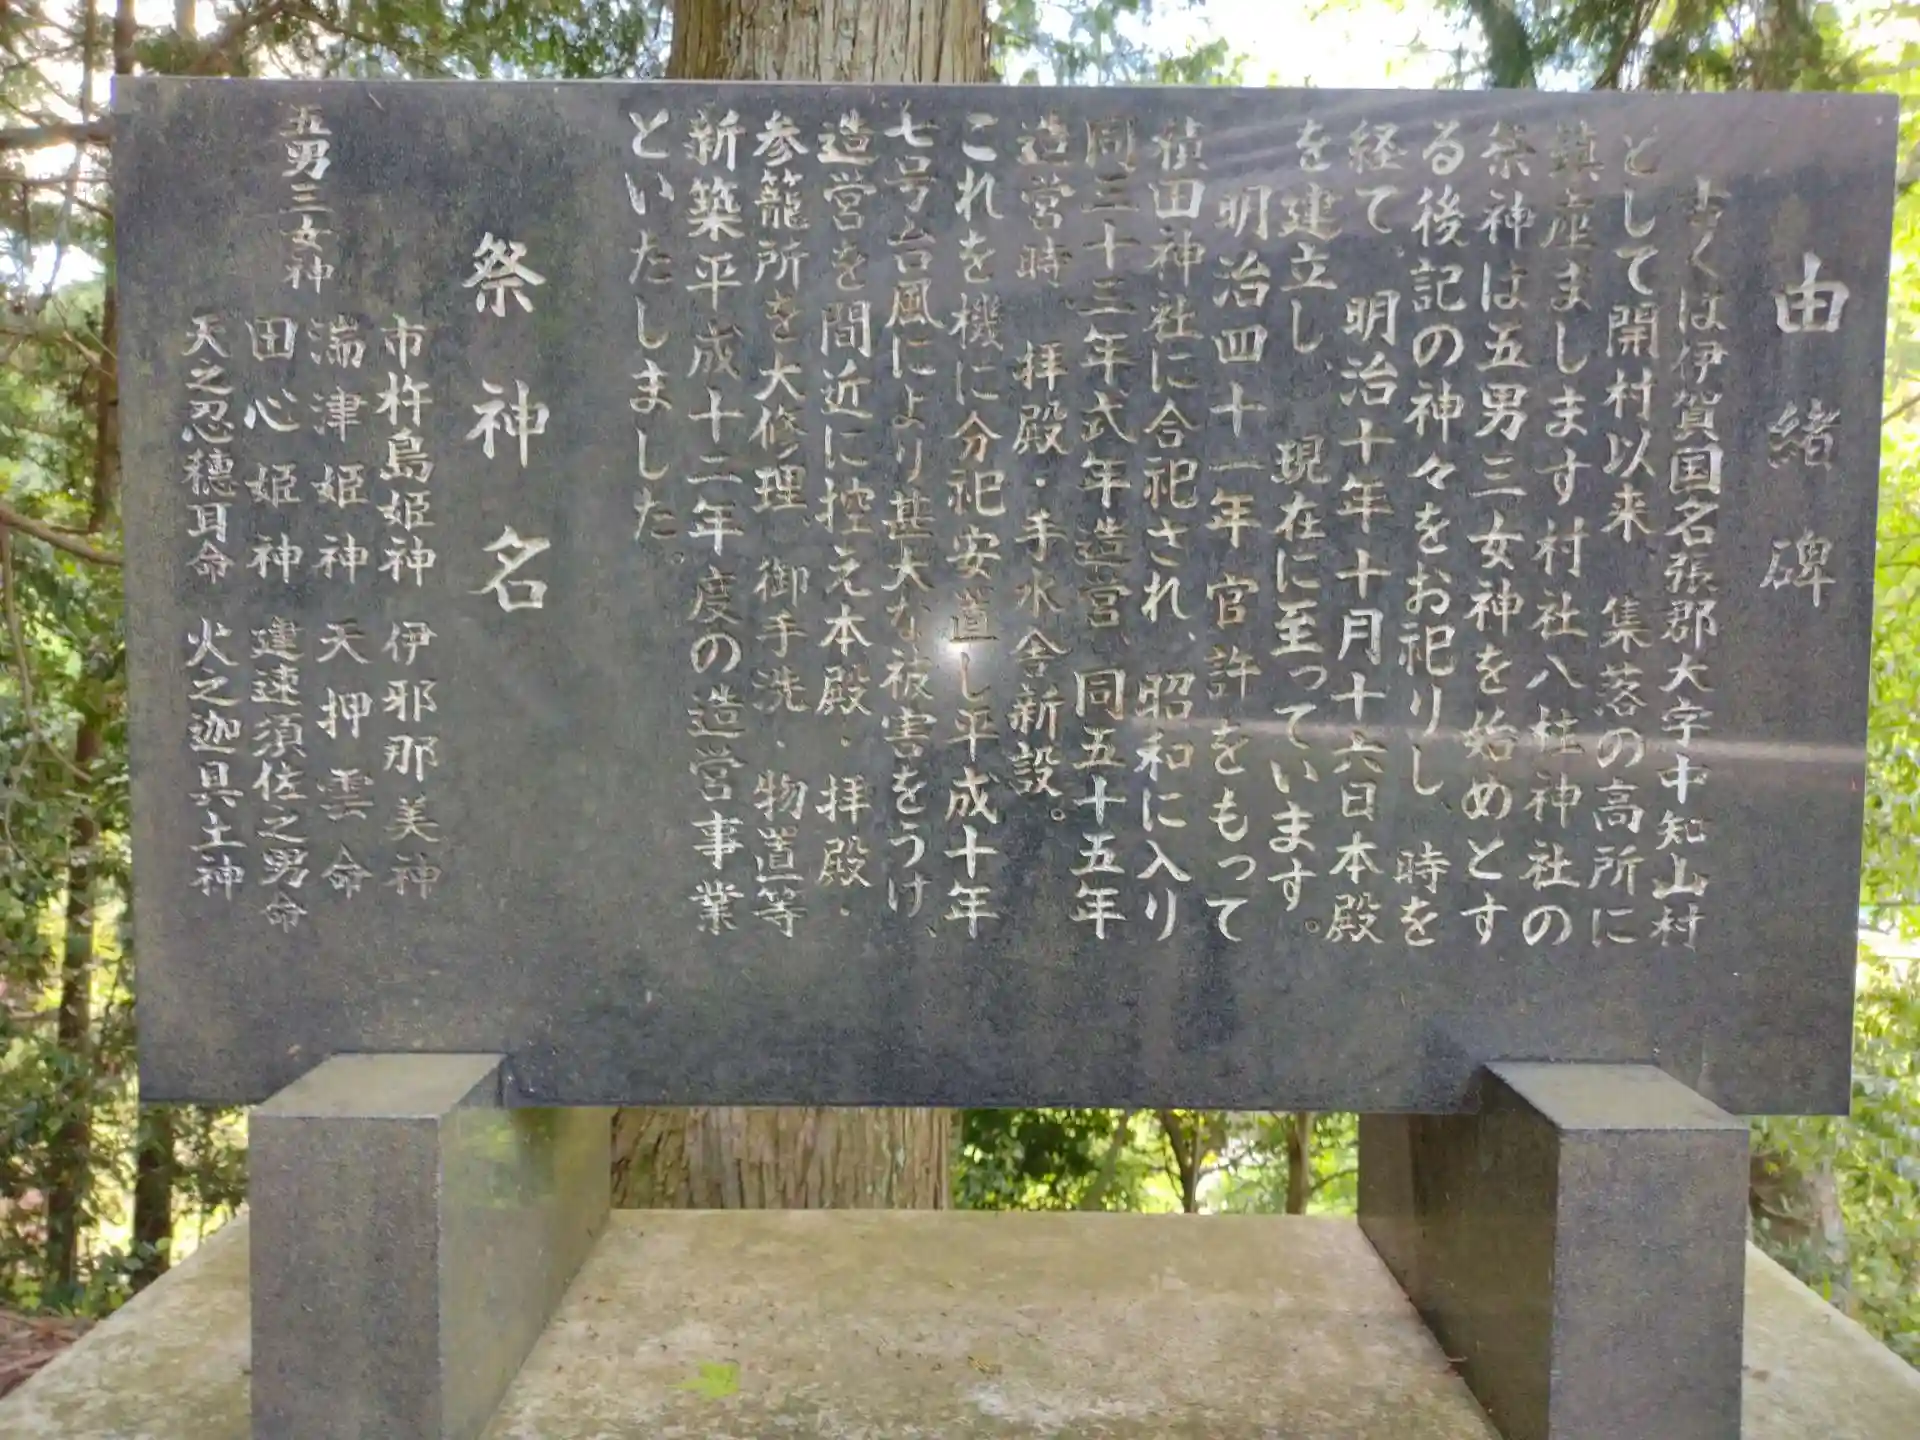 由緒碑
古くは伊賀国名張郡大字中知山村
として開村以来 集落の高所に
鎮座ましします村社八柱神社の
祭神は五男三女神を始めとす
る後記の神々をお祀りし、時を
経て 明治十年十月十六日本殿
を建立し、現在に至っています。
明治四十一年 官許をもって
積田神社に合祀され、昭和に入り
同三十三年式年造営、同五十五年
造営時、拝殿・手水舎新設。
これを機に分祀安置し平成十年
七号台風により甚大な被害をうけ、
造営を間近に控え本殿・拝殿・
参籠所を大修理、御手洗・物置等
新築平成十二年度の造営事業
といたしました。
祭神名
市杵島姫神 伊邪那美神
湍津姫神 天押雲命
五男三女神
田心姫神 建速須佐之男命
天之忍穂耳命 火之迦具土神